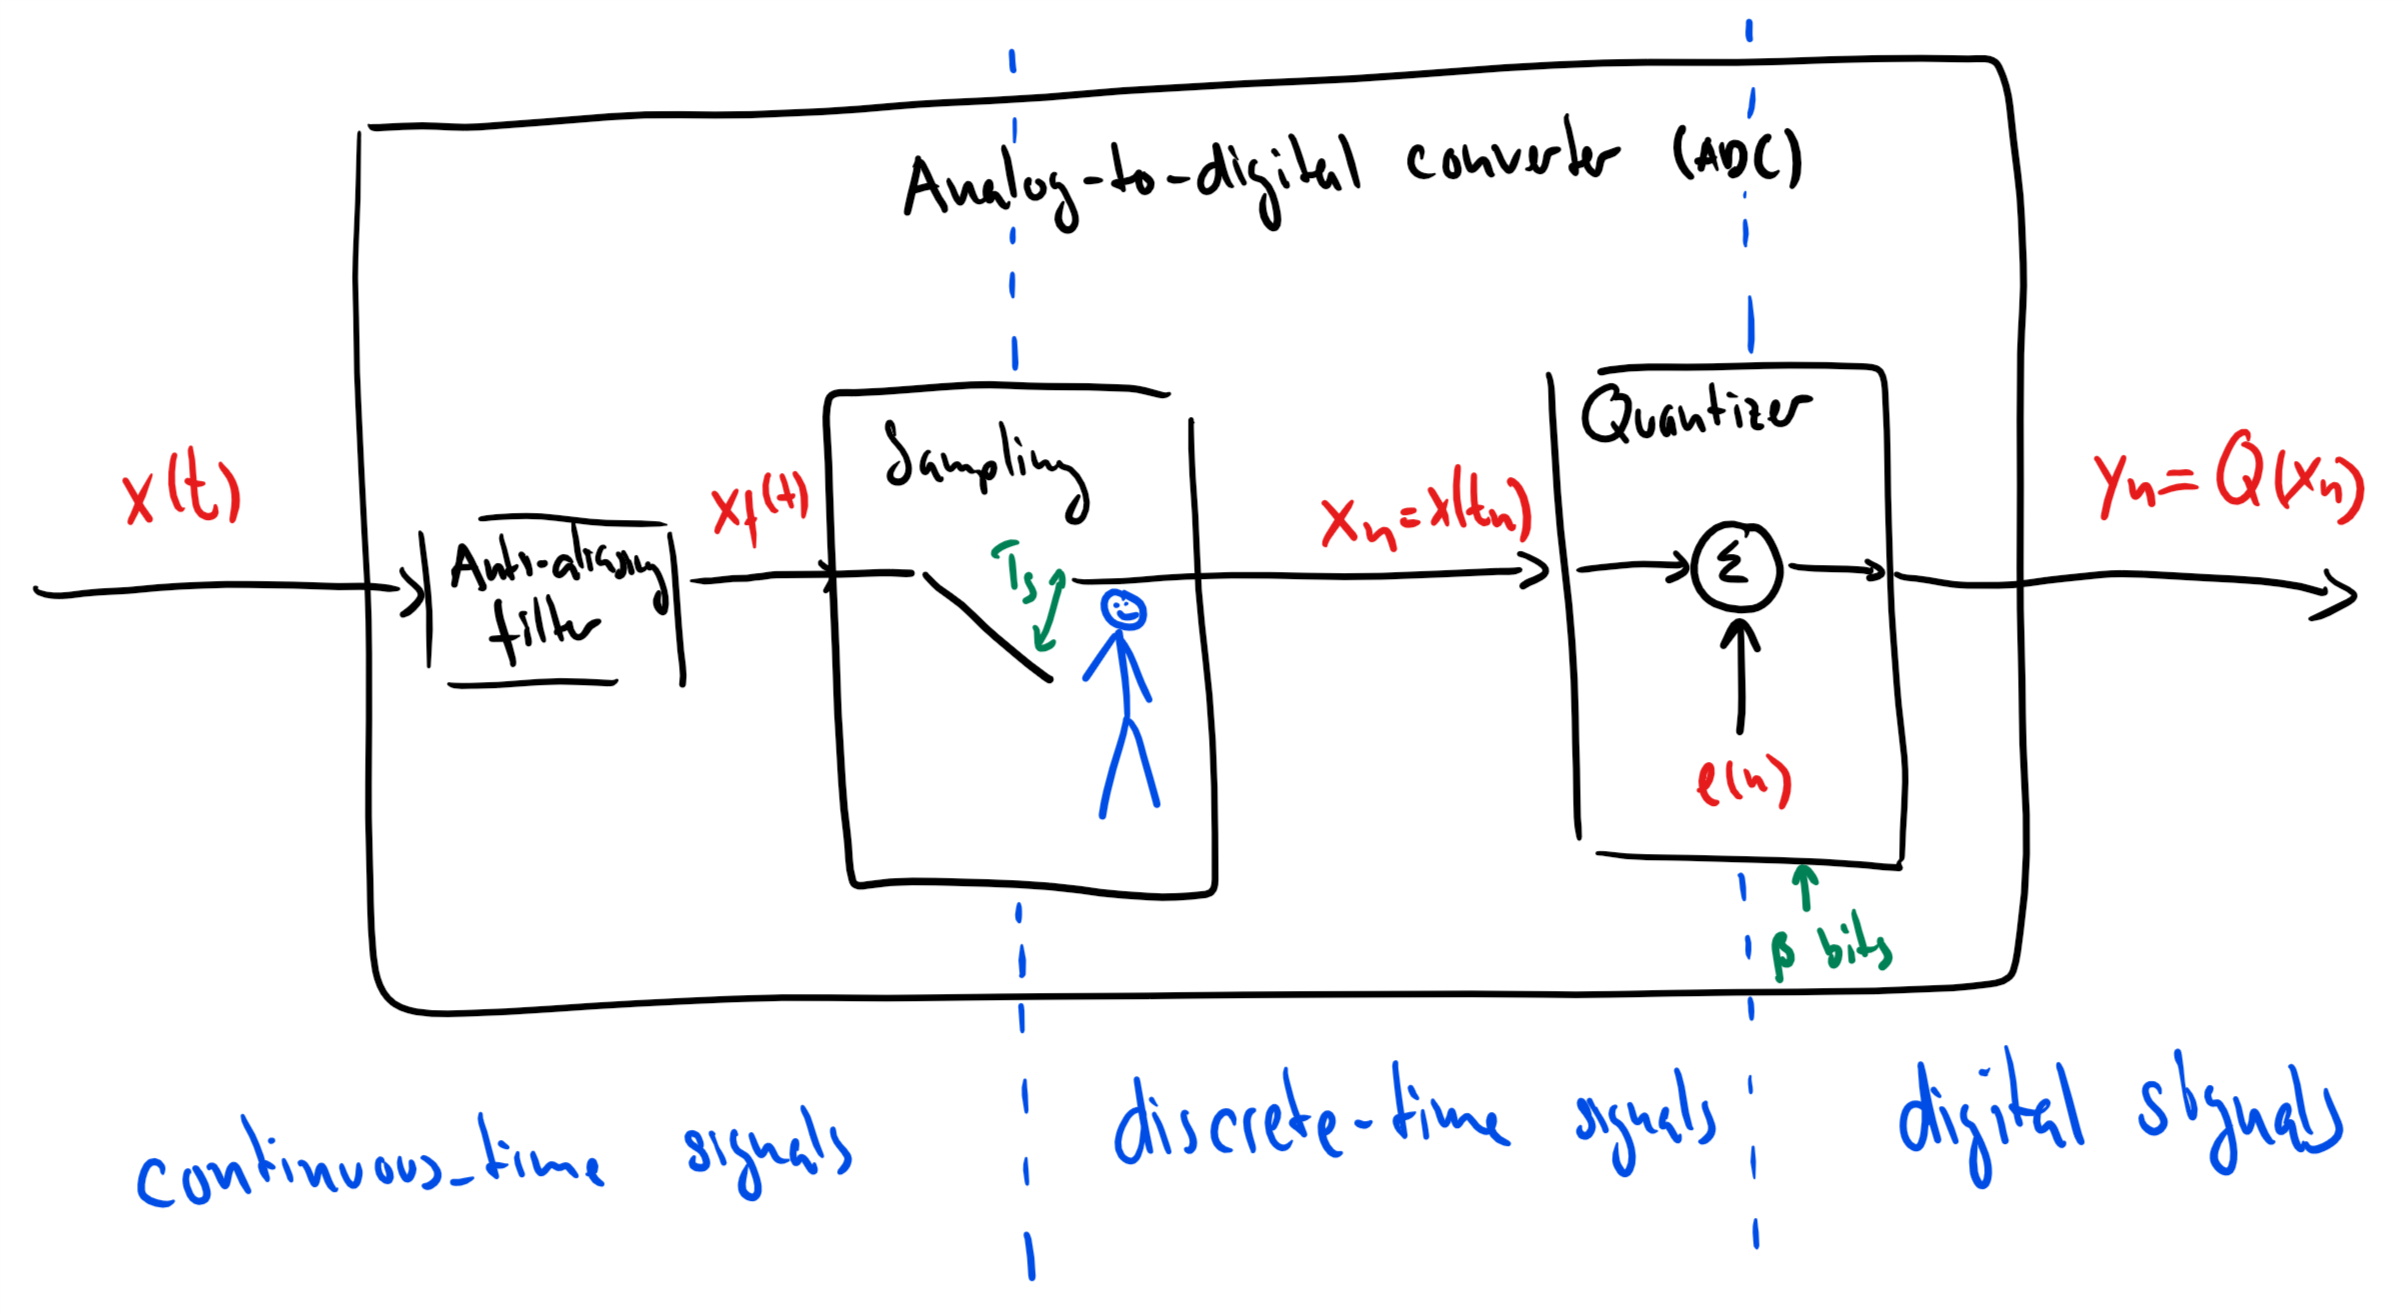 Analog-to-digital converter (ADC)
x(t)
Anti-aliasing
filter
xf(t)
Sampling
Ts
xn = x(tn)
Quantizer
Σ
e(n)
β bits
yn = Q(xn)
continuous-time signals
discrete-time signals
digital signals